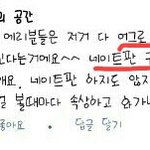 의 공간
에리분들은 저거 다 여그로
신다는거예요~~ 네이트판
개요. 네이트판 하지도 않지
널 볼때마다 속상하고 화가
좋아요 · 답글 달기